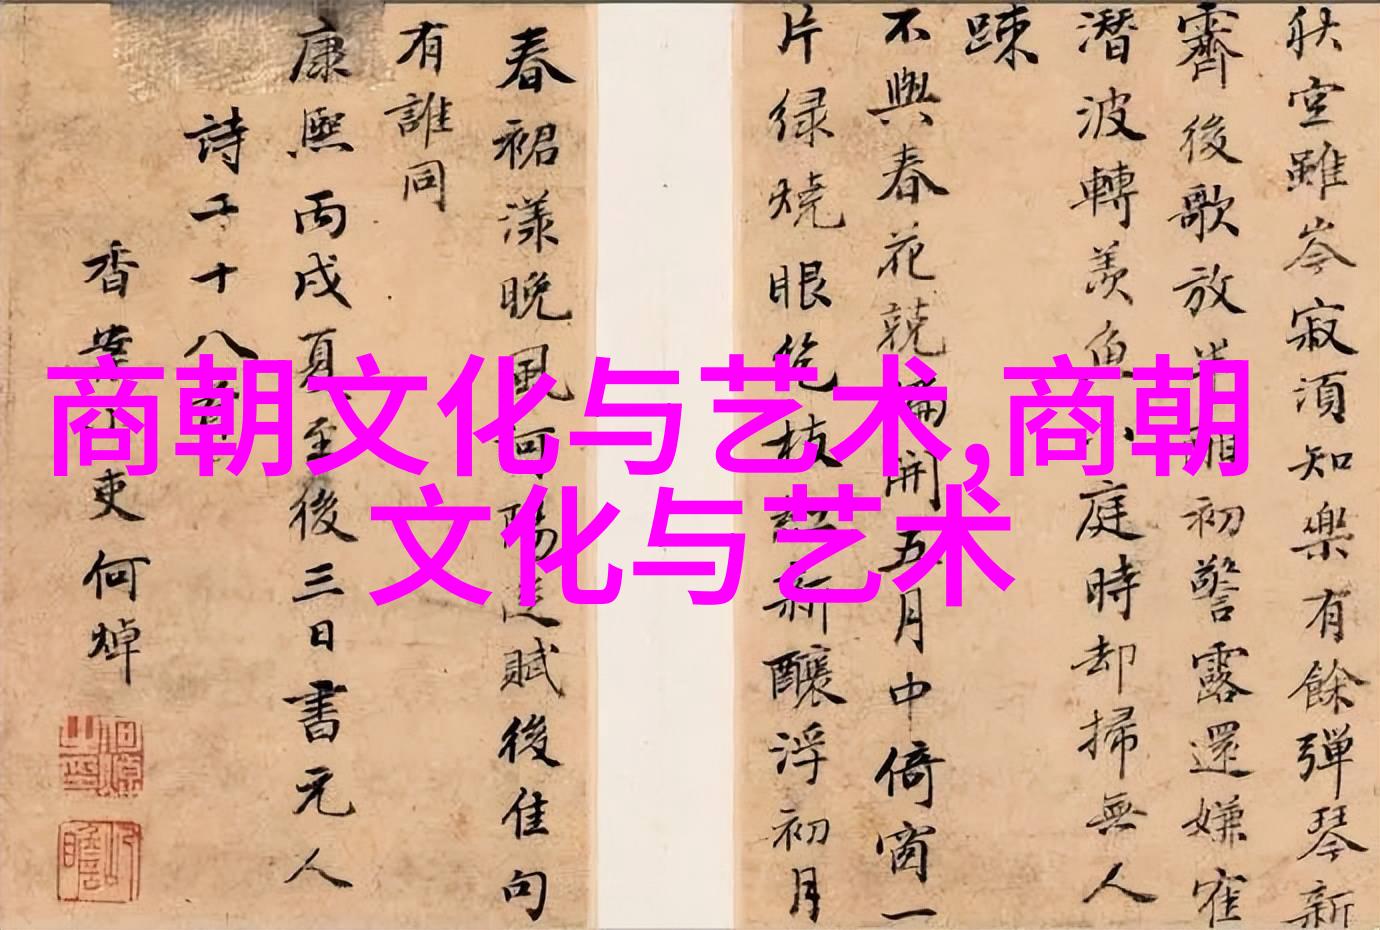 秋室雖岑寂須知樂有餘彈琴新
霽後歌放半酣初警露還嫌
潛波轉羨魚庭時却掃無人
踈
不與春花競開五月中倚窗一
片緑燒眼枝新釀浮初月
春裙漾晚風賦後佳句
有誰同
康熙丙戌夏至後三日書元人
詩二十八
香吏何焯
商朝文化与艺术,商朝
文化与艺术